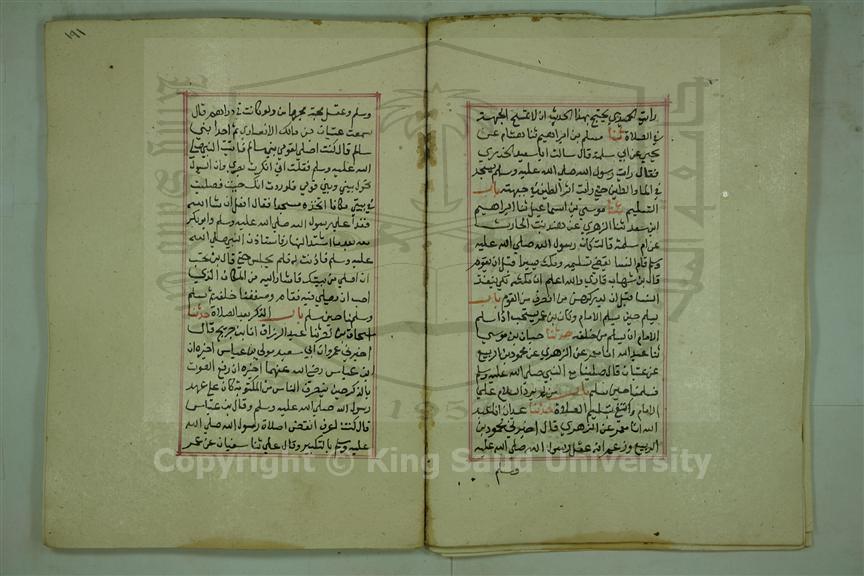 رايت الحميدي يحتج بهذا الحديث ان لا يمسح الجبهة
في الصلاة ثنا مسلم بن ابراهيم ثنا هشام عن
يحيى عن ابي سلمة قال سالت ابا سعيد الخدري
فقال رايت رسول الله صلى الله عليه وسلم يسجد
في الماء والطين حتى رايت اثر الطين في جبهته باب
التسليم ثنا موسى بن اسماعيل ثنا ابراهيم
ابن سعد ثنا الزهري عن هند بنت الحارث
عن ام سلمة قالت كان رسول الله صلى الله عليه
وسلم قام النسا تسليمه ومكث يسيرا قبل ان يقوم
قال بن شهاب فاري والله اعلم ان مكثه لكي ينفذ
النسا قبل ان يدركهن من انصرف من القوم باب
يسلم حين يسلم الامام وكان بن عمر يستحب اذا سلم
الامام ان يسلم من خلفه حدثنا حبان بن موسى
ثنا عبد الله انا معمر عن الزهري عن محمود بن الربيع
عن عتبان قال صلينا مع النبي صلى الله عليه وسلم
فسلمنا حين سلم باب من لم يرد السلام على
الامام واكتفى بتسليم الصلاة حدثنا عبدان انا عبد
الله انا معمر عن الزهري قال اخبرني محمود بن
الربيع وزعم انه عقل رسول الله صلى الله عليه
وسلم
١٩١
وسلم وعقل مجة مجها من دلو كانت في دارهم قال
سمعت عتبان بن مالك الانصاري ثم احد بني
سالم قال كنت اصلي لقومي بني سالم فاتيت النبي صلى
الله عليه وسلم فقلت اني انكرت بصري وان السيول
تحول بيني وبين قومي فلوددت انك جيت فصليت
في بيتي مكانا اتخذه مسجدا فقال افعل ان شا الله
فغدا علي رسول الله صلى الله عليه وسلم وابو بكر
معه بعد ما اشتد النهار فاستاذن النبي صلى الله
عليه وسلم فاذنت له فلم يجلس حتى قال اين تحب
ان اصلي من بيتك فاشار اليه من المكان الذي
احب ان يصلي فيه فقام وصففنا خلفه ثم سلم
وسلمنا حين سلم باب الذكر بعد الصلاة حدثنا
اسحاق بن نصر ثنا عبد الرزاق انا بن جريج قال
اخبرني عمرو ان ابا معبد مولى بن عباس اخبره ان
ابن عباس رضي الله عنهما اخبره ان رفع الصوت
بالذكر حين ينصرف الناس من المكتوبة كان على عهد
رسول الله صلى الله عليه وسلم وقال بن عباس
قال كنت اعرف انقضا صلاة رسول الله صلى الله
عليه وسلم بالتكبير وقال علي ثنا سفيان عن عمر
Copyright © King Saud University